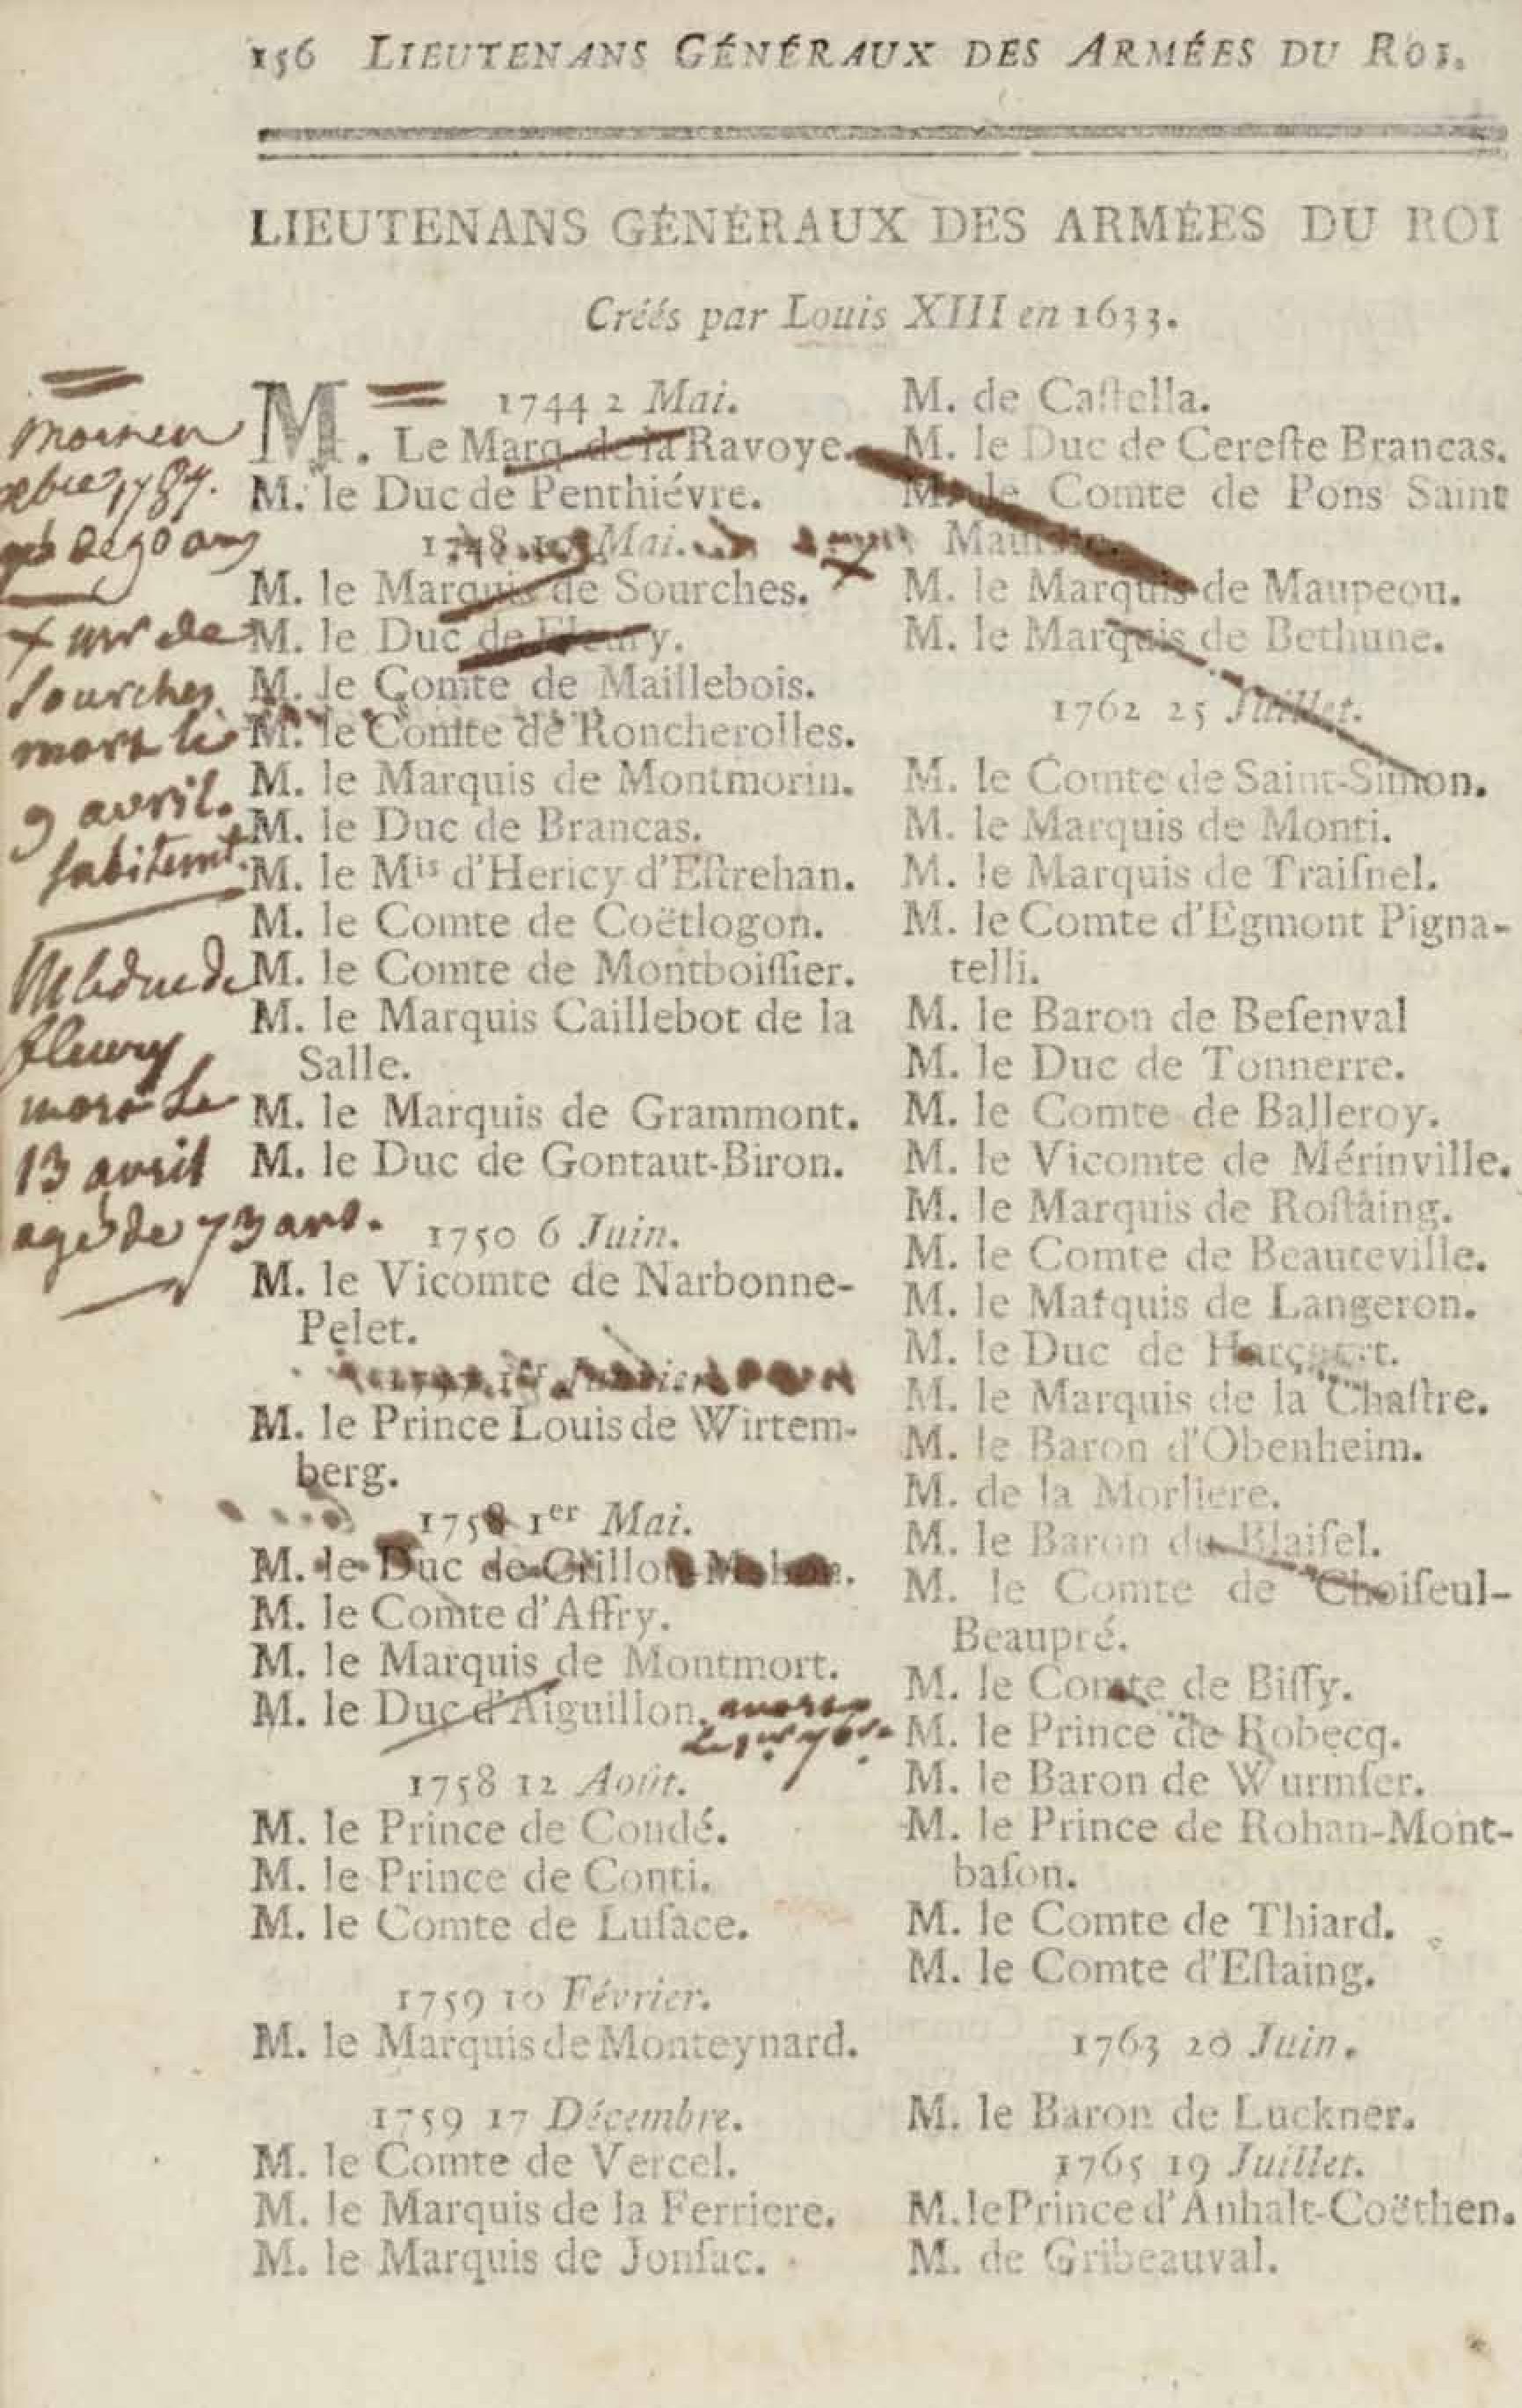 156 LIEUTENANS GÉNÉRAUX DES ARMÉES DU ROI.
LIEUTENANS GÉNÉRAUX DES ARMÉES DU ROI
Créés par Louis XIII en 1633.
1744 2 Mai.
M. Le Marq. de la Ravoye.
M. le Duc de Penthiévre.
1748 10 Mai.
M. le Marquis de Sourches.
M. le Duc de Fleury.
M. le Comte de Maillebois.
M. le Comte de Roncherolles.
M. le Marquis de Montmorin.
M. le Duc de Brancas.
M. le Mis d'Hericy d'Eſtrehan.
M. le Comte de Coëtlogon.
M. le Comte de Montboiſſier.
M. le Marquis Caillebot de la
Salle.
M. le Marquis de Grammont.
M. le Duc de Gontaut-Biron.
1750 6 Juin.
M. le Vicomte de Narbonne-
Pelet.
1er Janvier
M. le Prince Louis de Wirtem-
berg.
1758 1er Mai.
M. le Duc de Crillon Mahon.
M. le Comte d'Affry.
M. le Marquis de Montmort.
M. le Duc d'Aiguillon.
1758 12 Août.
M. le Prince de Condé.
M. le Prince de Conti.
M. le Comte de Luſace.
1759 10 Février.
M. le Marquis de Monteynard.
1759 17 Décembre.
M. le Comte de Vercel.
M. le Marquis de la Ferriere.
M. le Marquis de Jonſac.
M. de Caſtella.
M. le Duc de Cereſte Brancas.
M. le Comte de Pons Saint
Maurice.
M. le Marquis de Maupeou.
M. le Marquis de Bethune.
1762 25 Juillet.
M. le Comte de Saint-Simon.
M. le Marquis de Monti.
M. le Marquis de Traiſnel.
M. le Comte d'Egmont Pigna-
telli.
M. le Baron de Beſenval
M. le Duc de Tonnerre.
M. le Comte de Balleroy.
M. le Vicomte de Mérinville.
M. le Marquis de Roſtaing.
M. le Comte de Beauteville.
M. le Marquis de Langeron.
M. le Duc de Harcourt.
M. le Marquis de la Chaſtre.
M. le Baron d'Obenheim.
M. de la Morliere.
M. le Baron du Blaiſel.
M. le Comte de Choiſeul-
Beaupré.
M. le Comte de Biſſy.
M. le Prince de Robecq.
M. le Baron de Wurmſer.
M. le Prince de Rohan-Mont-
baſon.
M. le Comte de Thiard.
M. le Comte d'Eſtaing.
1763 20 Juin.
M. le Baron de Luckner.
1765 19 Juillet.
M. le Prince d'Anhalt-Coëthen.
M. de Gribeauval.
mort en
xbre 1787.
agé de 90 ans
+ mr de
Sourches
mort le
9 avril.
subitemt.
M le duc de
fleury
mort le
13 avril
agé de 73 ans.
mort
le 1er 7bre